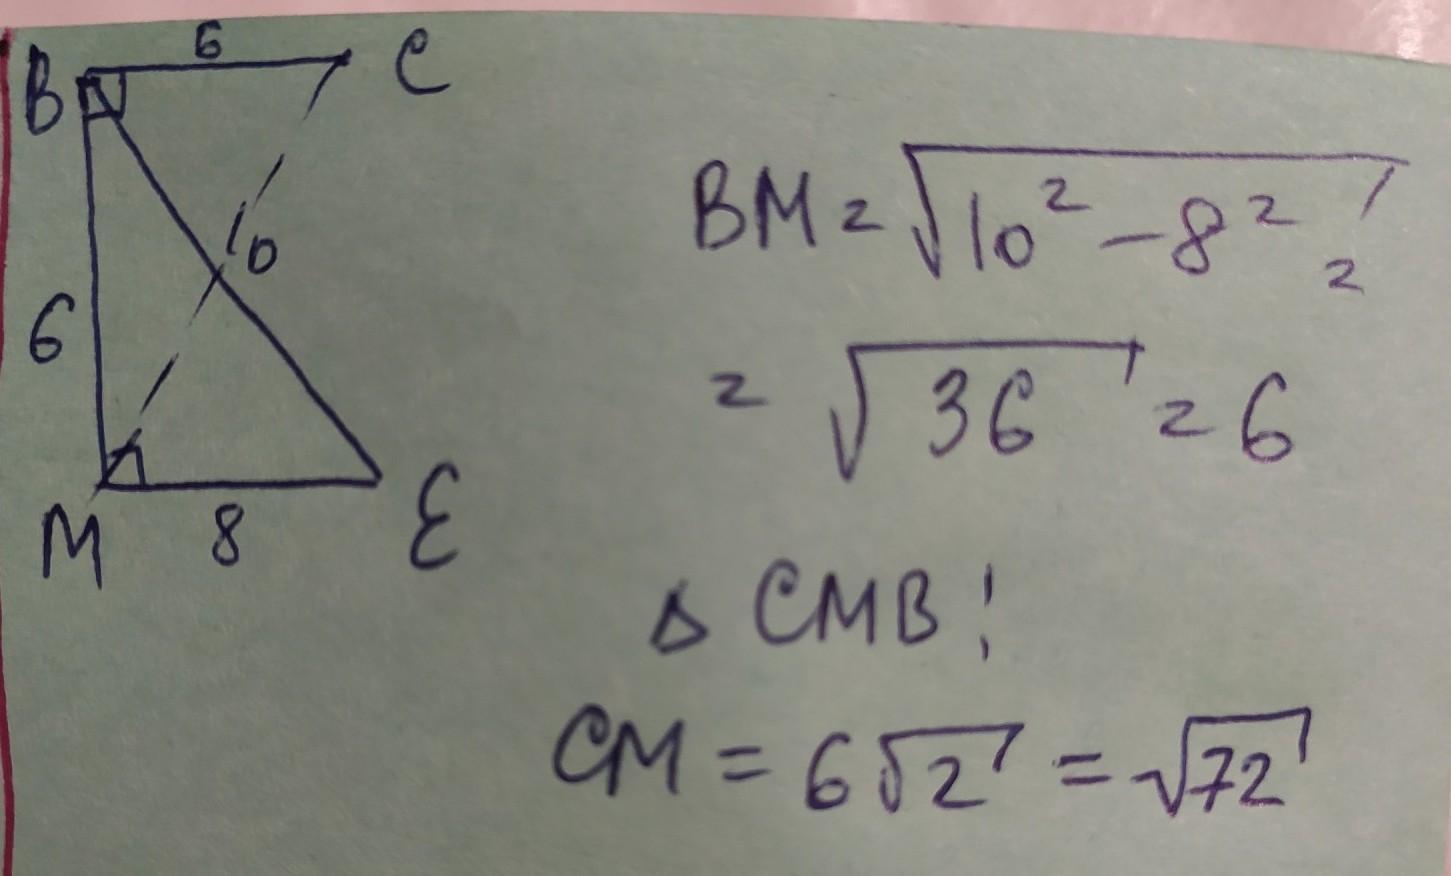 6
B
C
10
6
M
8
E
BM = √10² - 8² =
= √36 = 6
Δ CMB:
CM = 6√2 = √72